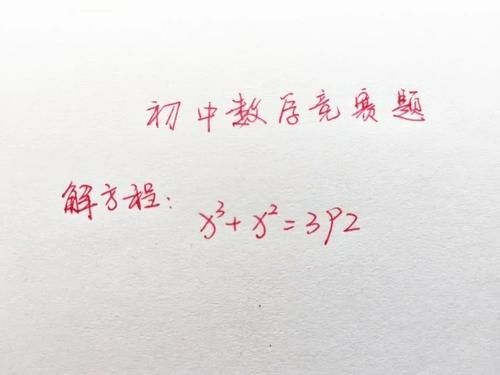 初中数学竞赛题
解方程：
x³+x²=392